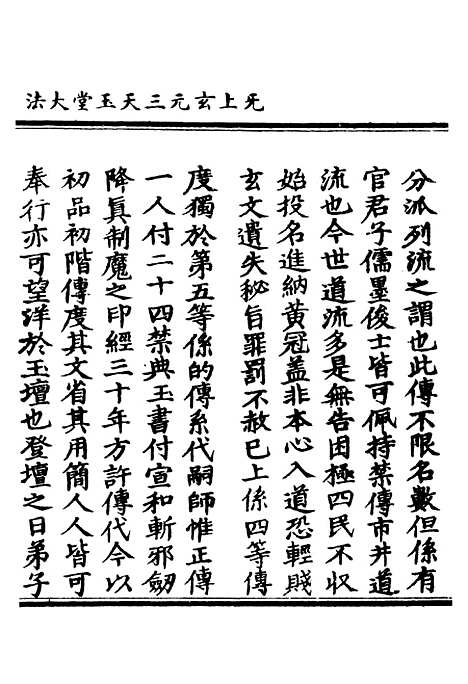 旡上玄元三天玉堂大法
分派列流之謂也此傳不限名數但係有
官君子儒墨俊士皆可佩持禁傳市井道
流也今世道流多是無告困極四民不收
始投名進納黃冠蓋非本心入道恐輕賤
玄文遺失秘旨罪罰不赦已上係四等傳
度獨於第五等係的傳系代嗣師惟正傳
一人付二十四禁典玉書付宣和斬邪劒
降眞制魔之印經三十年方許傳代今以
初品初階傳度其文省其用簡人人皆可
奉行亦可望洋於玉壇也登壇之日弟子